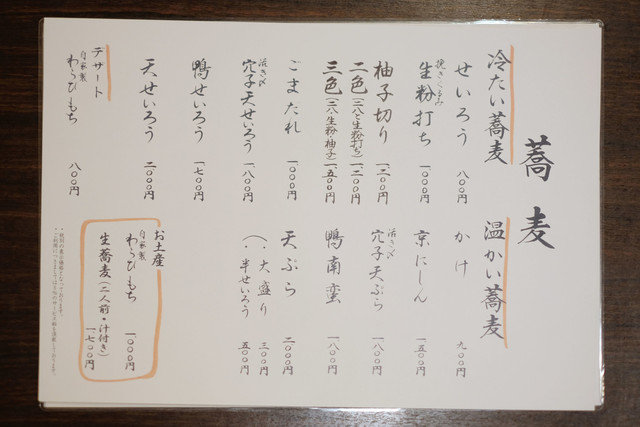 蕎麦
冷たい蕎麦
せいろう 八〇〇円
挽きぐるみ
生粉打ち 一、〇〇〇円
柚子切り 一、二〇〇円
二色(二八と生粉打ち) 一、二〇〇円
三色(二八・生粉・柚子) 一、五〇〇円
ごまたれ 一、〇〇〇円
活き〆
穴子天せいろう 一、八〇〇円
鴨せいろう 一、七〇〇円
天せいろう 二、〇〇〇円
デザート
自家製
わらびもち 八〇〇円
温かい蕎麦
かけ 九〇〇円
京にしん 一、五〇〇円
活き〆
穴子天ぷら 一、八〇〇円
鴨南蛮 一、八〇〇円
天ぷら 二、〇〇〇円
(・大盛り 三〇〇円
・半せいろう 五〇〇円
お土産
自家製
わらびもち 一、〇〇〇円
生蕎麦(二人前・汁付き)
一、七〇〇円